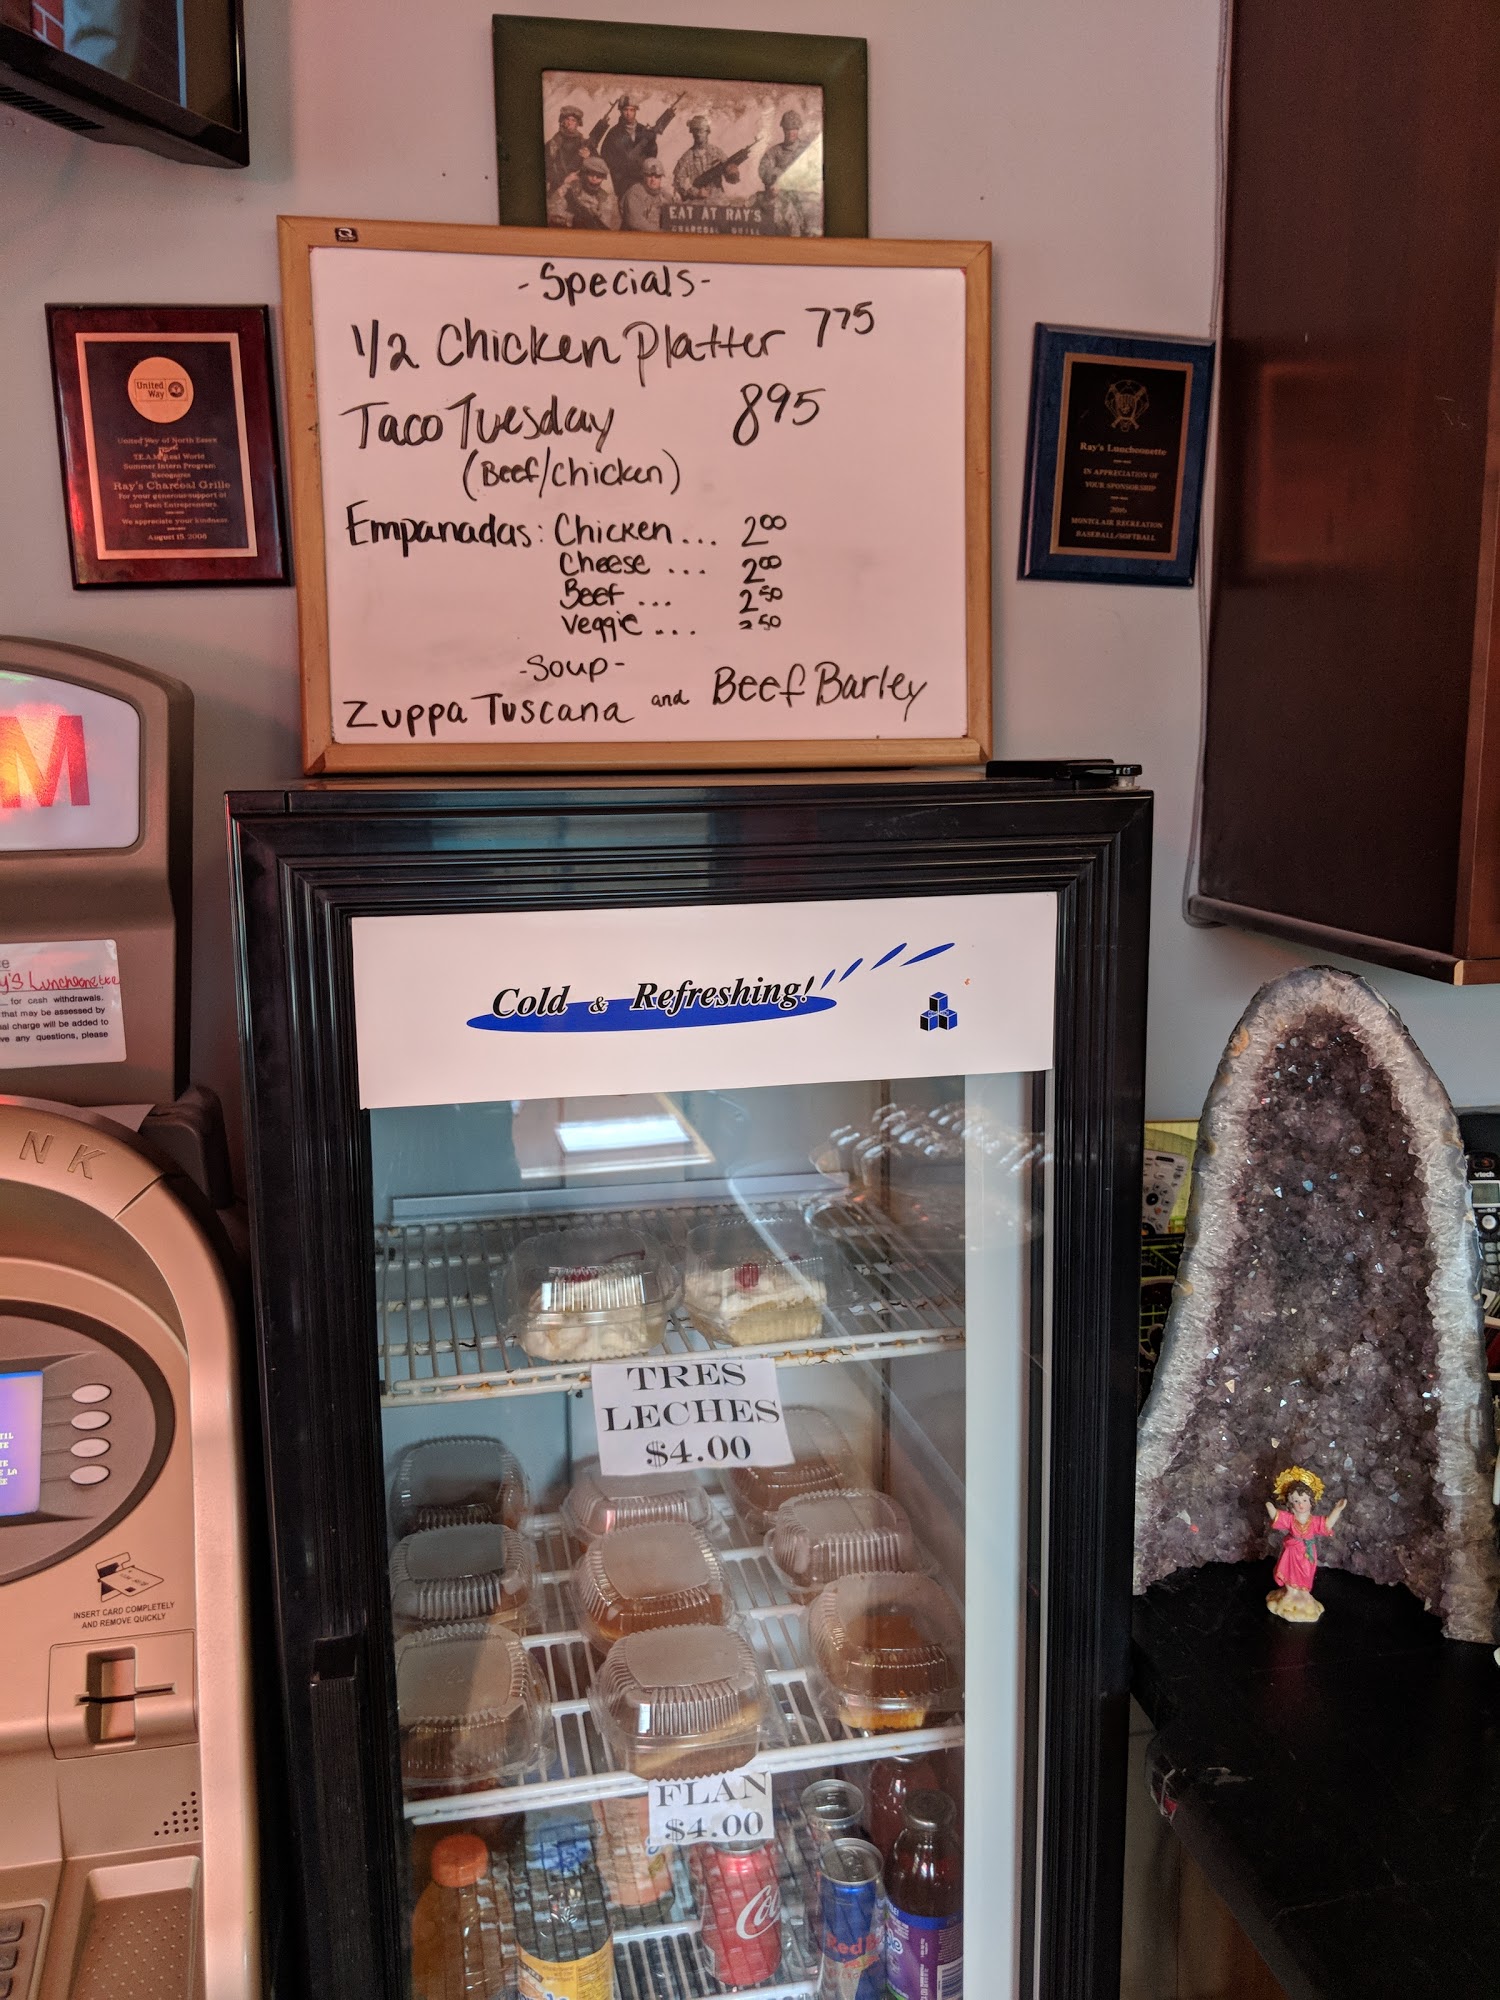 EAT AT RAY'S
CHARCOAL GRILL
-Specials-
1/2 Chicken Platter 775
Taco Tuesday 895
(Beef/Chicken)
Empanadas: Chicken... 200
Cheese ... 200
Beef ... 250
Veggie .... 250
-Soup-
Zuppa Tuscana and Beef Barley
United
Way
United Way of North Essex
T.E.A.M. Real World
Summer Intern Program
Recognizes
Ray's Charcoal Grille
For your generous support of
our Teen Entrepreneurs
We appreciate your kindness
August 15, 2008
Ray's Luncheonette
IN APPRECIATION OF
YOUR SPONSORSHIP
2016
MONTCLAIR RECREATION
BASEBALL/SOFTBALL
M
y's Luncheonette
for cash withdrawals.
that may be assessed by
al charge will be added to
ve any questions, please
NK
INSERT CARD COMPLETELY
AND REMOVE QUICKLY
Cold & Refreshing!
TRES
LECHES
$4.00
FLAN
$4.00
Co
Red B
vtech